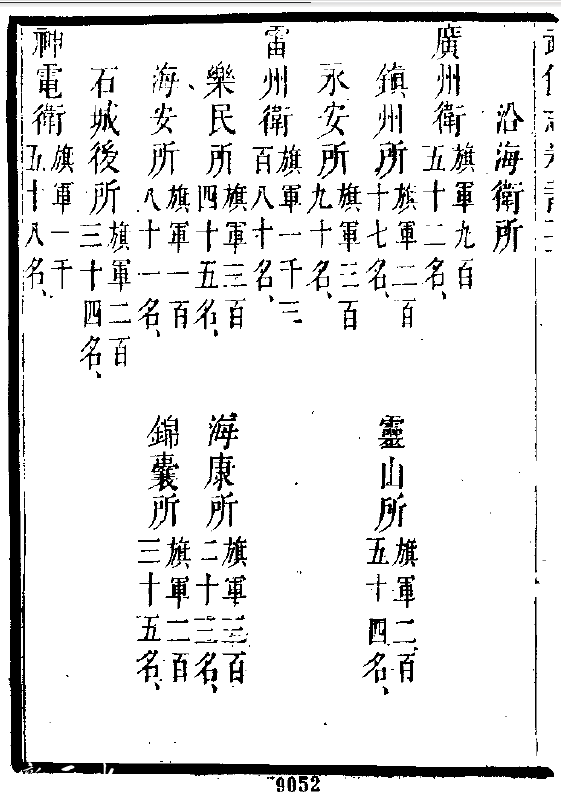 沿海衛所
廣州衛旗軍九百五十二名、
鎮州所旗軍二百十七名、
靈山所旗軍二百五十四名、
永安所旗軍三百九十名、
雷州衛旗軍一千三百八十名、
樂民所旗軍三百四十五名、
海康所旗軍三百二十三名、
海安所旗軍一百八十一名、
錦囊所旗軍二百三十五名、
石城後所旗軍二百三十四名、
神電衛旗軍一千五十八名、
9052